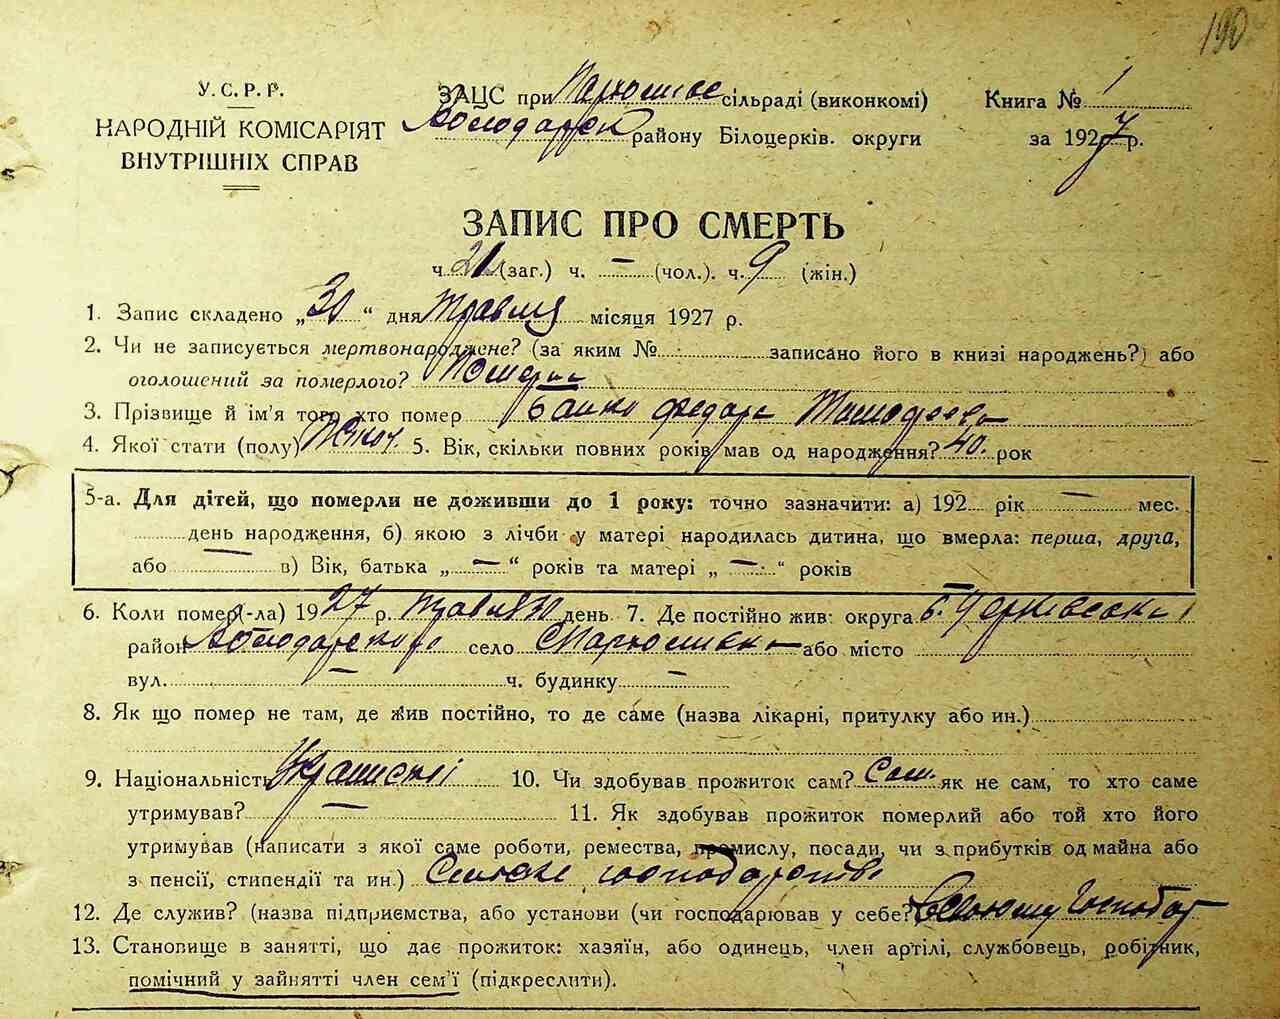 190
У.С.Р.Р.
НАРОДНІЙ КОМІСАРІЯТ
ВНУТРІШНІХ СПРАВ
ЗАЦС при сільраді (виконкомі)
Володарск району Білоцерків. округи
Книга № 1
за 1927 р.
ЗАПИС ПРО СМЕРТЬ
ч. 21 (заг.) ч. — (чол.). ч. 9 (жін.)
1. Запис складено „30“ дня травня місяця 1927 р.
2. Чи не записується мертвонароджене? (за яким № записано його в книзі народжень?) або
оголошений за померлого?
3. Прізвище й ім'я того хто помер Байко Федора Тимофеева
4. Якої стати (полу) Жіноч. 5. Вік, скільки повних років мав од народження? 40. рок
5-а. Для дітей, що померли не доживши до 1 року: точно зазначити: а) 192 рік — мес.
день народження, б) якою з лічби у матері народилась дитина, що вмерла: перша, друга,
або — в) Вік, батька „ — “ років та матері „ — “ років
6. Коли помер(-ла) 1927 р. травня 30 день. 7. Де постійно жив: округа Б. Церківська
район Володарского село або місто —
вул. — ч. будинку —
8. Як що помер не там, де жив постійно, то де саме (назва лікарні, притулку або ин.)
9. Національність 10. Чи здобував прожиток сам? Сам. як не сам, то хто саме
утримував? — 11. Як здобував прожиток померлий або той хто його
утримував (написати з якої саме роботи, ремества, промислу, посади, чи з прибутків од майна або
з пенсії, стипендії та ин.) Сельске господарство
12. Де служив? (назва підприємства, або установи (чи господарював у себе?
13. Становище в занятті, що дає прожиток: хазяїн, або одинець, член артілі, службовець, робітник,
помічний у зайнятті член сем'ї (підкреслити).